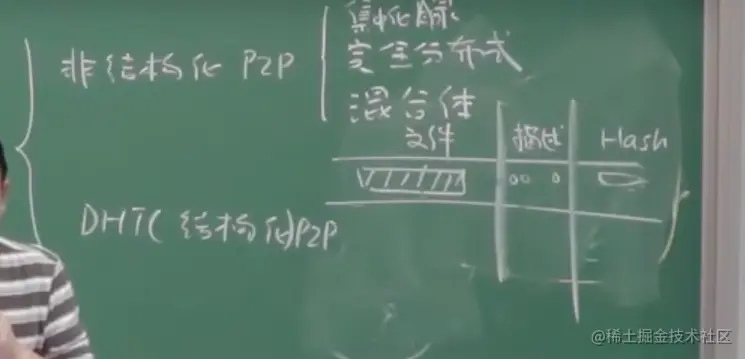 非结构化 P2P
集中化
完全分布式
混合体
文件 描述 Hash
DHT(结构化)P2P
@稀土掘金技术社区